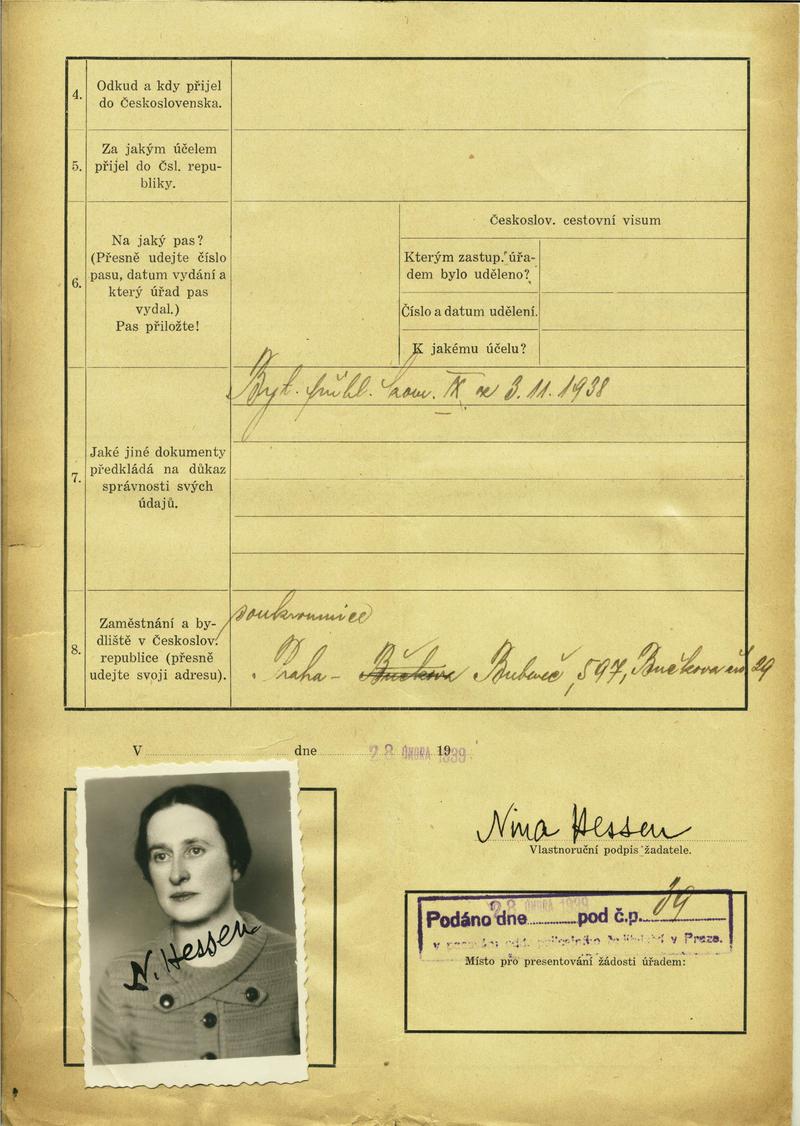 4.
Odkud a kdy přijel
do Československa.
5.
Za jakým účelem
přijel do Čsl. repu-
bliky.
6.
Na jaký pas?
(Přesně udejte číslo
pasu, datum vydání a
který úřad pas
vydal.)
Pas přiložte!
Českoslov. cestovní visum
Kterým zastup. úřa-
dem bylo uděleno?
Číslo a datum udělení.
K jakému účelu?
Byt. přihl. kom. IX 3.11.1938
7.
Jaké jiné dokumenty
předkládá na důkaz
správnosti svých
údajů.
8.
Zaměstnání a by-
dliště v Českoslov.
republice (přesně
udejte svoji adresu).
soukromnice
Praha - Bučkova Bubeneč, 597, Bučkova čís. 29
V dne 28 ÚNORA 1939 19
Nina Hessen
Vlastnoruční podpis žadatele.
N. Hessen
28 ÚNORA 1939 39
Podáno dne pod č.p.
v Praze.
Místo pro presentování žádosti úřadem: